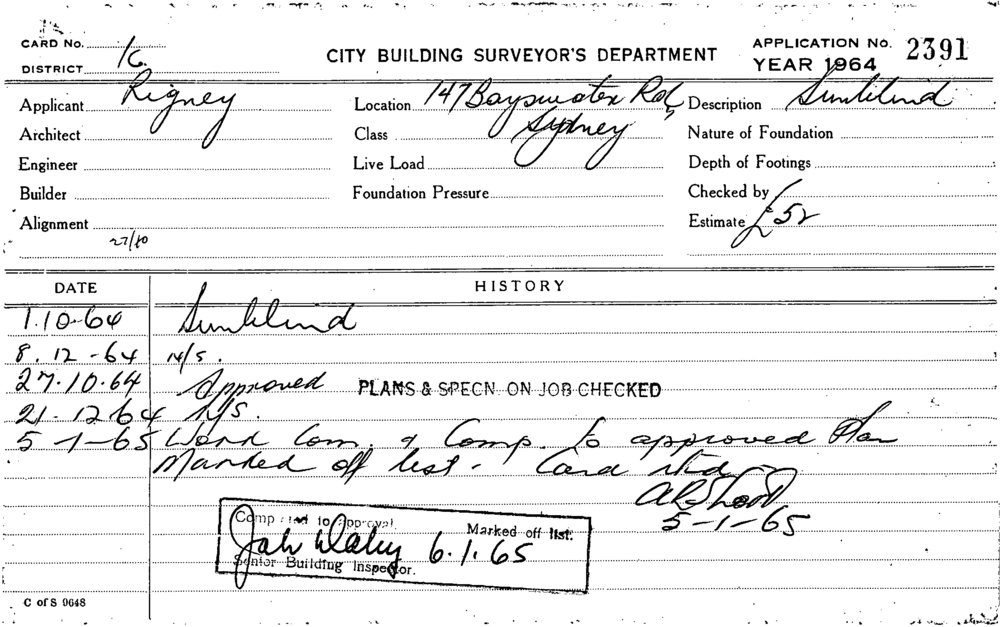 CARD No. 16.
CITY BUILDING SURVEYOR'S DEPARTMENT
APPLICATION No. 2391
DISTRICT
YEAR 1964
Applicant Rigney
Location 147 Bayswater Rd, Sydney
Description Sunblind
Architect
Class
Nature of Foundation
Engineer
Live Load
Depth of Footings
Builder
Foundation Pressure
Checked by
Alignment
Estimate £52
27/80
DATE
HISTORY
1.10-64 Sunblind
8.12-64 N/S.
27.10.64 Approved PLANS & SPECN. ON JOB CHECKED
21.12.64 N/S.
5-1-65 Work Com. & Comp. to approved Plan
Marked off list - Card rtd
5-1-65
Completed to approval.
Marked off list.
6.1.65
Senior Building Inspector.
C of S 9648